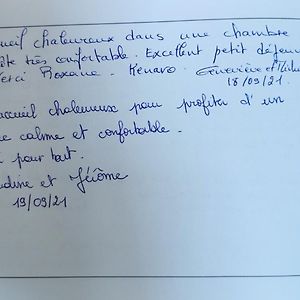 ueil chaleureux dans une chambre
très confortable. Excellent petit déjeu
erci Roxane. Kénavo. Geneviève et
18/09/21.
accueil chaleureux pour profiter d'un
e calme et confortable.
i pour tout.
udine et Jérôme
19/09/21